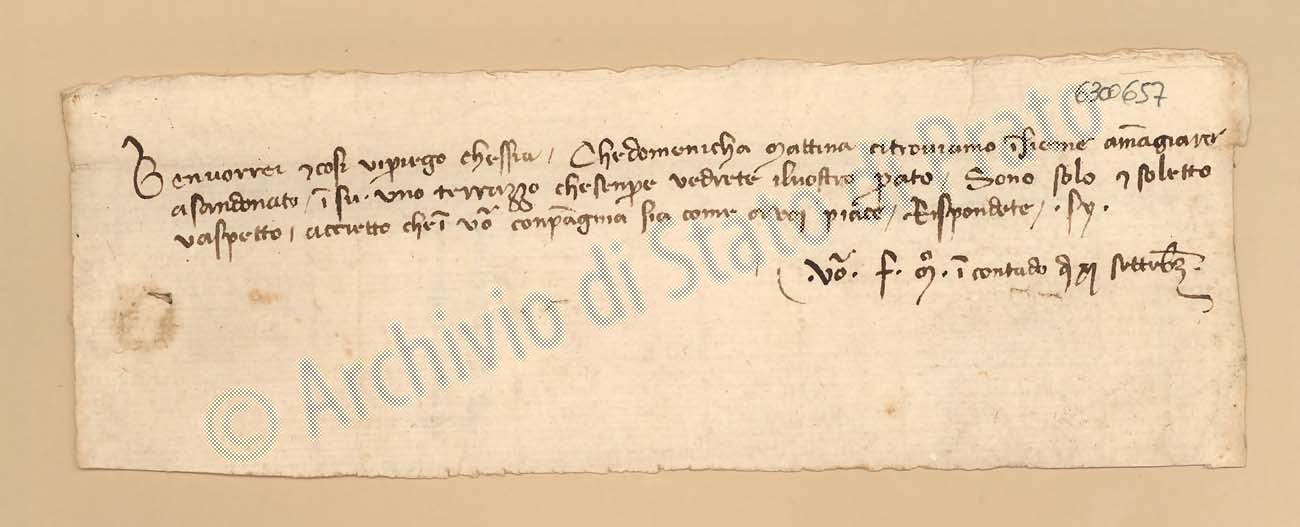 6300657
Benvorrei e cosi vipriego chessia / Chedomenicha mattina citroviamo īsieme amāgiare
asandonato / ī su uno terrazzo chesenpre vedrete ilvostro prato / Sono solo e soletto
vaspetto / accietto cheī vōa conpāgnia sia come a voi piacie / Rispondete / . sy .
. Vō . F . M . ī contado dì XI settēbre .
© Archivio di Stato di Prato